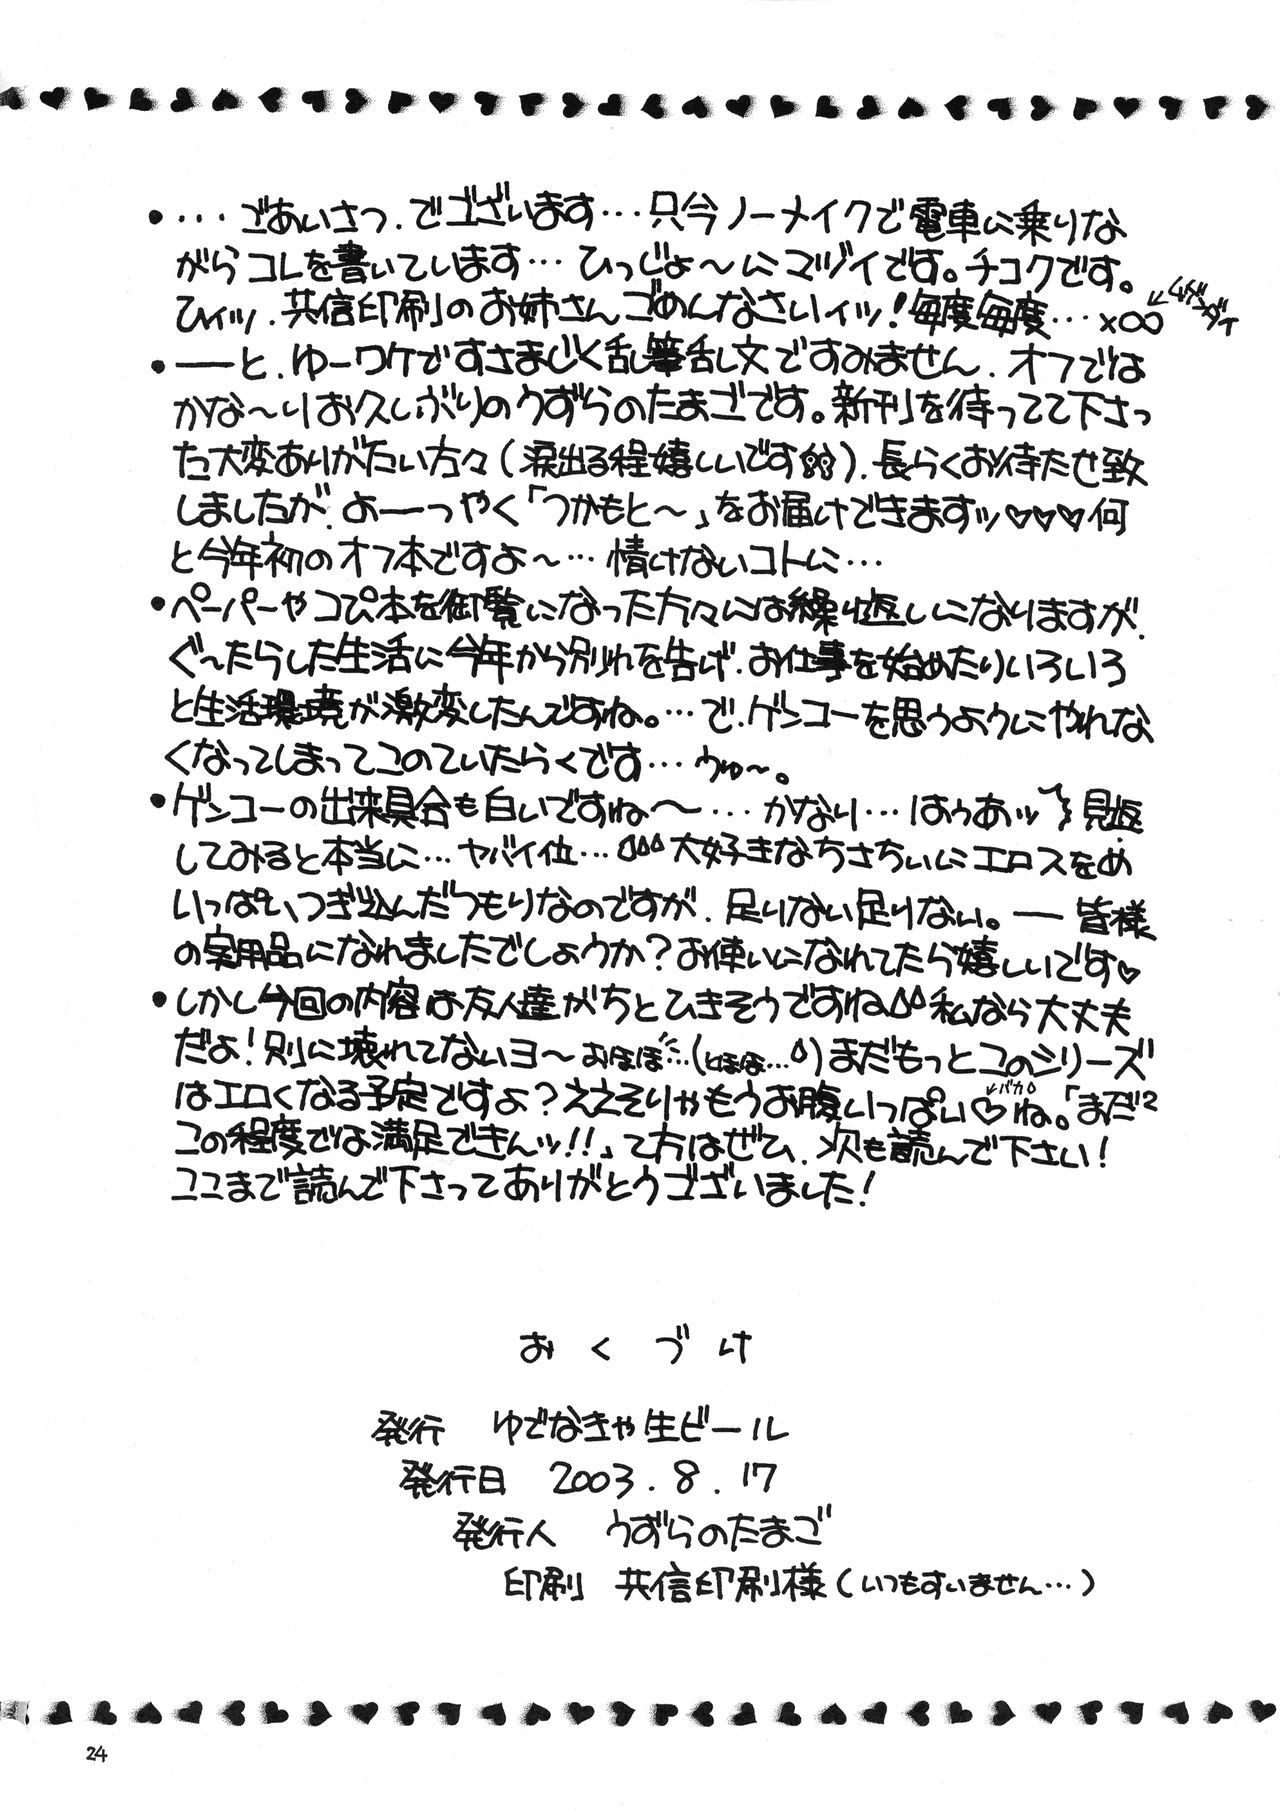 ・・・・ごあいさつ.でゴざいます…只今ノーメイクで電車に乗りな
がらコレを書いています… ひっじょ〜にマヅイです。チコクです。
ひィッ.共信印刷のお姉さんごめんなさいィッ!毎度毎度…×∞ ←ムゲンダイ
・——と.ゆーワケですさまじく乱筆乱文ですみません.オフでは
かな〜りお久しぶりのうずらのたまごです。新刊を待ってて下さっ
た大変ありがたい方々(涙出る程嬉しいです).長らくお待たせ致
しましたが.よーーっやく「つかもと〜」をお届けできますッ♡♡♡何
と今年初のオフ本ですよ〜…情けないコトに…
・ペーパーやコぴ本を御覧になった方々には繰り返しになりますが.
ぐ〜たらした生活に今年から別れを告げ.お仕事を始めたりいろいろ
と生活環境が激変したんですね。…で.ゲンコーを思うようにやれな
くなってしまってこのていたらくです…うゅ〜。
・ゲンコーの出来具合も白いですね〜…かなり…はぅあッ 見返
してみると本当に…ヤバイ位…大好きなちさちぃにエロスをめ
いっぱいつぎ込んだつもりなのですが.足りない足りない。——皆様
の実用品になれましたでしょうか?お使いになれてたら嬉しいです♡
・しかし今回の内容は友人達がちとひきそうですね 私なら大丈夫
だよ!別に壊れてないヨ〜おほほ…(とほほ…)まだもっとこのシリーズ
はエロくなる予定ですよ?ええそりゃもうお腹いっぱい♡←バカ ね。「まだ²
この程度では満足できんッ!!」て方はぜひ.次も読んで下さい!
ココまで読んで下さってありがとうゴざいました!
おくづけ
発行 ゆでなきゃ生ビール
発行日 2003.8.17
発行人 うずらのたまご
印刷 共信印刷様(いつもすいません…)
24